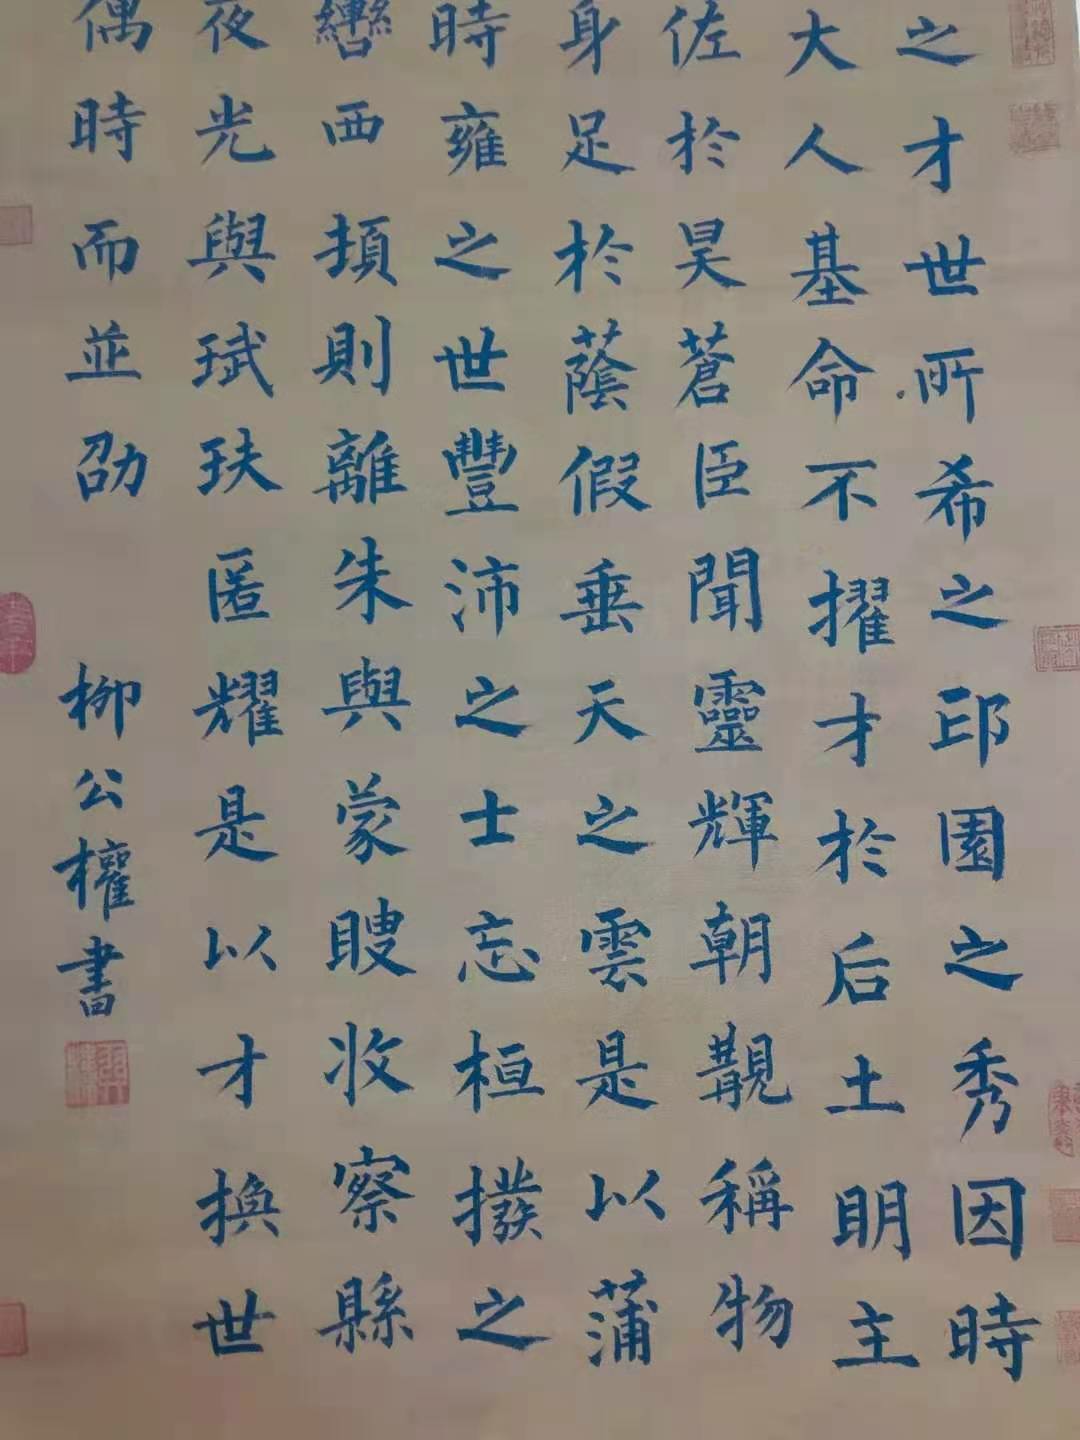 之才世所希之邱園之秀因時
大人基命不擢才於后土明主
佐於昊蒼臣聞靈輝朝覯稱物
身足於蔭假垂天之雲是以蒲
時雍之世豐沛之士忘桓撥之
轡西頓則離朱與蒙瞍收察縣
夜光與珷玞匿耀是以才換世
偶時而並劭
柳公權書